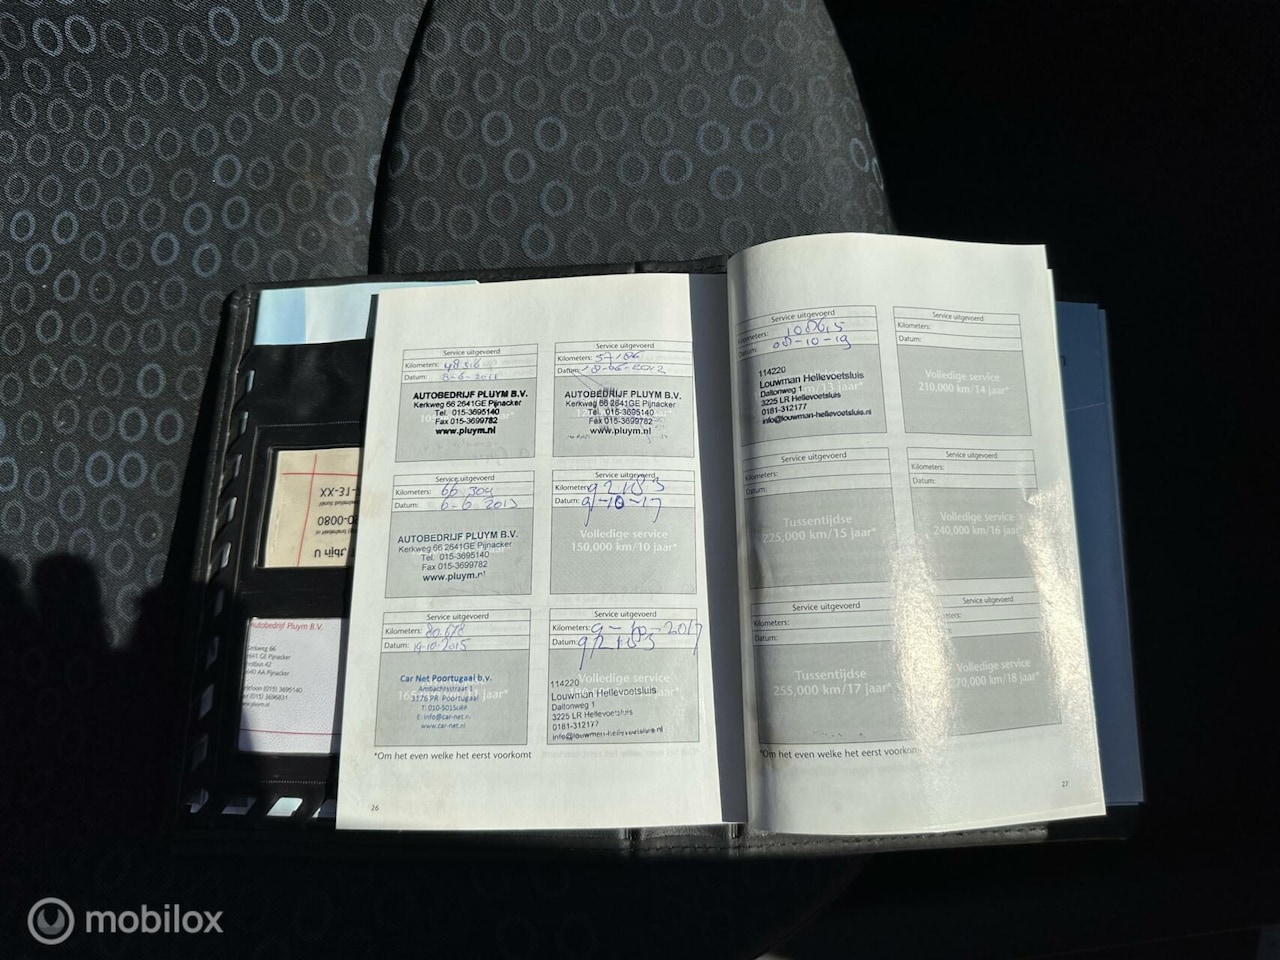 Service uitgevoerd
Kilometers: 48516
Datum: 8-6-2011
AUTOBEDRIJF PLUYM B.V.
Kerkweg 66 2641GE Pijnacker
Tel. 015-3695140
Fax 015-3699782
www.pluym.nl
Service uitgevoerd
Kilometers: 57186
Datum: 18-06-2012
AUTOBEDRIJF PLUYM B.V.
Kerkweg 66 2641GE Pijnacker
Tel. 015-3695140
Fax 015-3699782
www.pluym.nl
Service uitgevoerd
Kilometers: 66 304
Datum: 6-6-2013
AUTOBEDRIJF PLUYM B.V.
Kerkweg 66 2641GE Pijnacker
Tel. 015-3695140
Fax 015-3699782
www.pluym.nl
Service uitgevoerd
Kilometers: 92183
Datum: 9-10-17
Volledige service
150,000 km/10 jaar*
Service uitgevoerd
Kilometers: 80.678
Datum: 14-10-2015
Car Net Poortugaal b.v.
Ambachtsstraat 1
3176 PR Poortugaal
E: info@car-net.nl
www.car-net.nl
Service uitgevoerd
Kilometers: 9-10-2017
Datum: 92183
114220
Louwman Hellevoetsluis
Daltonweg 1
3225 LR Hellevoetsluis
0181-312177
info@louwman-hellevoetsluis.nl
*Om het even welke het eerst voorkomt
26
Service uitgevoerd
Kilometers: 108615
Datum: 08-10-19
114220
Louwman Hellevoetsluis
Daltonweg 1
3225 LR Hellevoetsluis
0181-312177
info@louwman-hellevoetsluis.nl
Service uitgevoerd
Kilometers:
Datum:
Volledige service
210,000 km/14 jaar*
Service uitgevoerd
Kilometers:
Datum:
Tussentijdse
225,000 km/15 jaar*
Service uitgevoerd
Kilometers:
Datum:
Volledige service
240,000 km/16 jaar*
Service uitgevoerd
Kilometers:
Datum:
Tussentijdse
255,000 km/17 jaar*
Service uitgevoerd
Kilometers:
Datum:
Volledige service
270,000 km/18 jaar*
*Om het even welke het eerst voorkomt
27
Autobedrijf Pluym B.V.
Kerkweg 66
2641 GE Pijnacker
mobilox